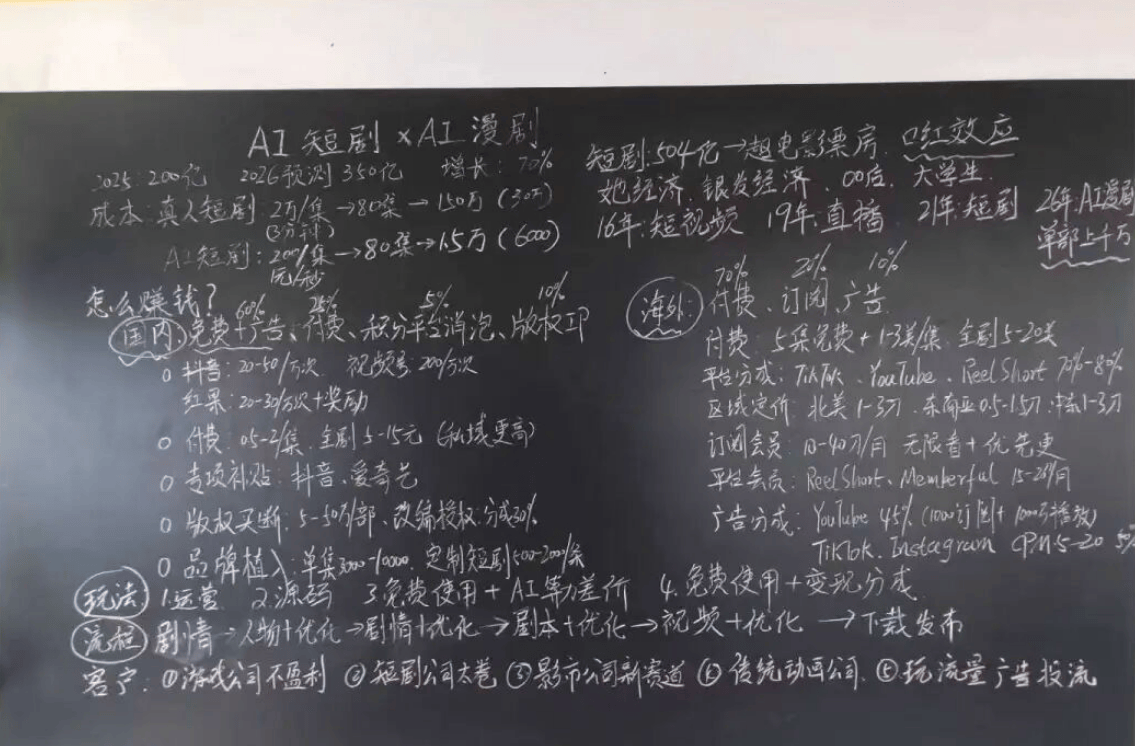 AI 短剧 × AI 漫剧
2025:200亿 2026预测 350亿 增长:70%
成本:真人短剧 2万/集→80集→150万(30万)
(3分钟)
AI短剧:200/集→80集→1.5万(6000)
元/秒
短剧:504亿→超电影票房、口红效应
她经济、银发经济、00后、大学生
16年:短视频 19年:直播 21年:短剧 26年:AI漫剧
单部上千万
怎么赚钱?
60% 5% 10%
国内:免费+广告、付费、积分平台消泡、版权IP
○ 抖音:20-50/万次 视频号 200/万次
红果:20-30/万次+奖励
○ 付费:0.5-2/集、全剧5-15元(私域更高)
○ 专项补贴:抖音、爱奇艺
○ 版权买断:5-50万/部、改编授权:分成30%
○ 品牌植入:单集3000-10000、定制短剧500-2000/条
70% 20% 10%
海外:付费、订阅、广告
付费:5集免费+1-3美/集、全剧5-20美
平台分成:TikTok、YouTube、ReelShort 70%-80%
区域定价:北美1-3刀、东南亚0.5-1.5刀、中东1-3刀
订阅会员:10-40刀/月 无限看+优先更
平台会员:ReelShort、Memberful 15-28/月
广告分成:YouTube 45%(1000订阅+1000万播放)
TikTok、Instagram CPM 5-20 50%
玩法 1.运营 2.源码 3.免费使用+AI算力差价 4.免费使用+变现分成
流程 剧情→人物+优化→剧情+优化→剧本+优化→视频+优化→下载发布
客户:①游戏公司不盈利 ②短剧公司太卷 ③影市公司新赛道 ④传统动画公司 ⑤玩流量广告投流